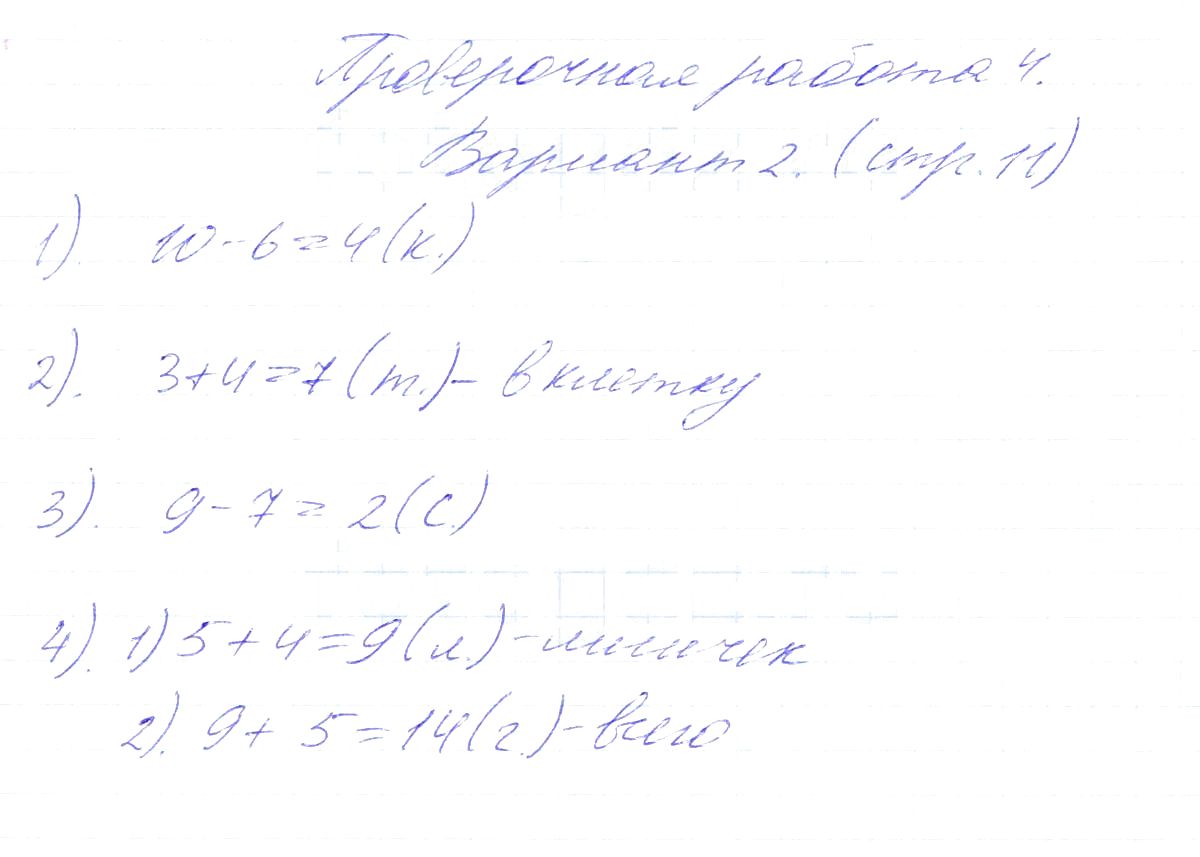 Проверочная работа 4.
Вариант 2. (стр. 11)
1). 10-6=4(к.)
2). 3+4=7(т.)- в клетку
3). 9-7=2(с.)
4). 1) 5+4=9(л.)-лисичек
2). 9+5=14(г.)-всего